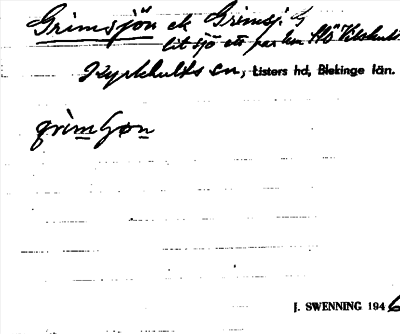 Grimsjön ek Grimsj.
lit sjö ett par km SSÖ Vilshult.
Kyrkhults sn, Listers hd, Blekinge län.
grimʃøn
J. SWENNING 1946